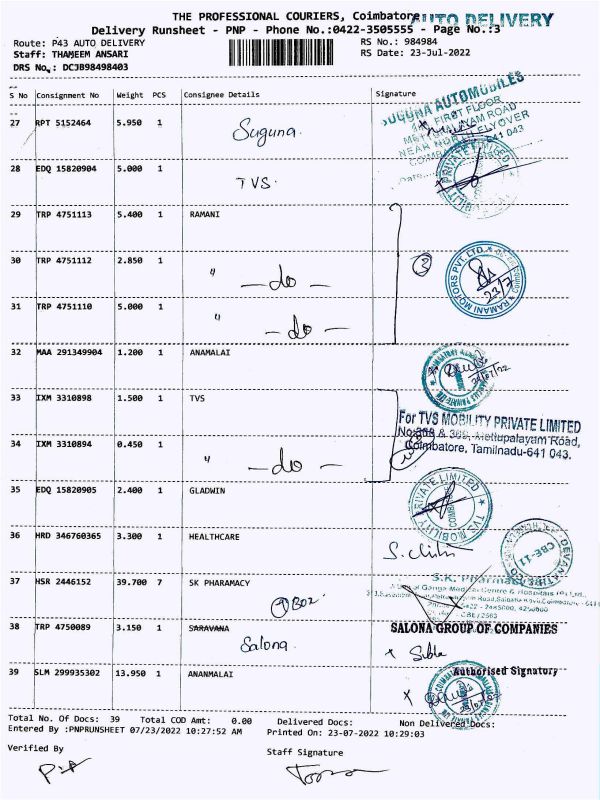 THE PROFESSIONAL COURIERS, Coimbatore
AUTO DELIVERY
Delivery Runsheet - PNP - Phone No.:0422-3505555 - Page No.:3
Route: P43 AUTO DELIVERY
RS No.: 984984
Staff: THAMEEM ANSARI
RS Date: 23-Jul-2022
DRS No.: DCJB98498403
S No Consignment No Weight PCS Consignee Details Signature
27 RPT 5152464 5.950 1 Suguna
SUGUNA AUTOMOBILES
FIRST FLOOR
METTUPALAYAM ROAD
NEAR NORTH FLYOVER
641 043
28 EDQ 15820904 5.000 1 TVS.
29 TRP 4751113 5.400 1 RAMANI
30 TRP 4751112 2.850 1 " — do —
3
RAMANI MOTORS PVT. LTD.
23/7
31 TRP 4751110 5.000 1 " — do —
32 MAA 291349904 1.200 1 ANAMALAI
33 IXM 3310898 1.500 1 TVS
For TVS MOBILITY PRIVATE LIMITED
No:368 & 369, Mettupalayam Road,
Coimbatore, Tamilnadu-641 043.
34 IXM 3310894 0.450 1 " — do —
35 EDQ 15820905 2.400 1 GLADWIN
TVS MOBILITY PRIVATE LIMITED
36 HRD 346760365 3.300 1 HEALTHCARE
CBE-11
37 HSR 2446152 39.700 7 SK PHARAMACY
S.K. Pharma
38 TRP 4750089 3.150 1 SARAVANA
Salona.
SALONA GROUP OF COMPANIES
Authorised Signatory
39 SLM 299935302 13.950 1 ANANMALAI
Total No. Of Docs: 39 Total COD Amt: 0.00 Delivered Docs: Non Delivered Docs:
Entered By :PNPRUNSHEET 07/23/2022 10:27:52 AM Printed On: 23-07-2022 10:29:03
Verified By
Staff Signature